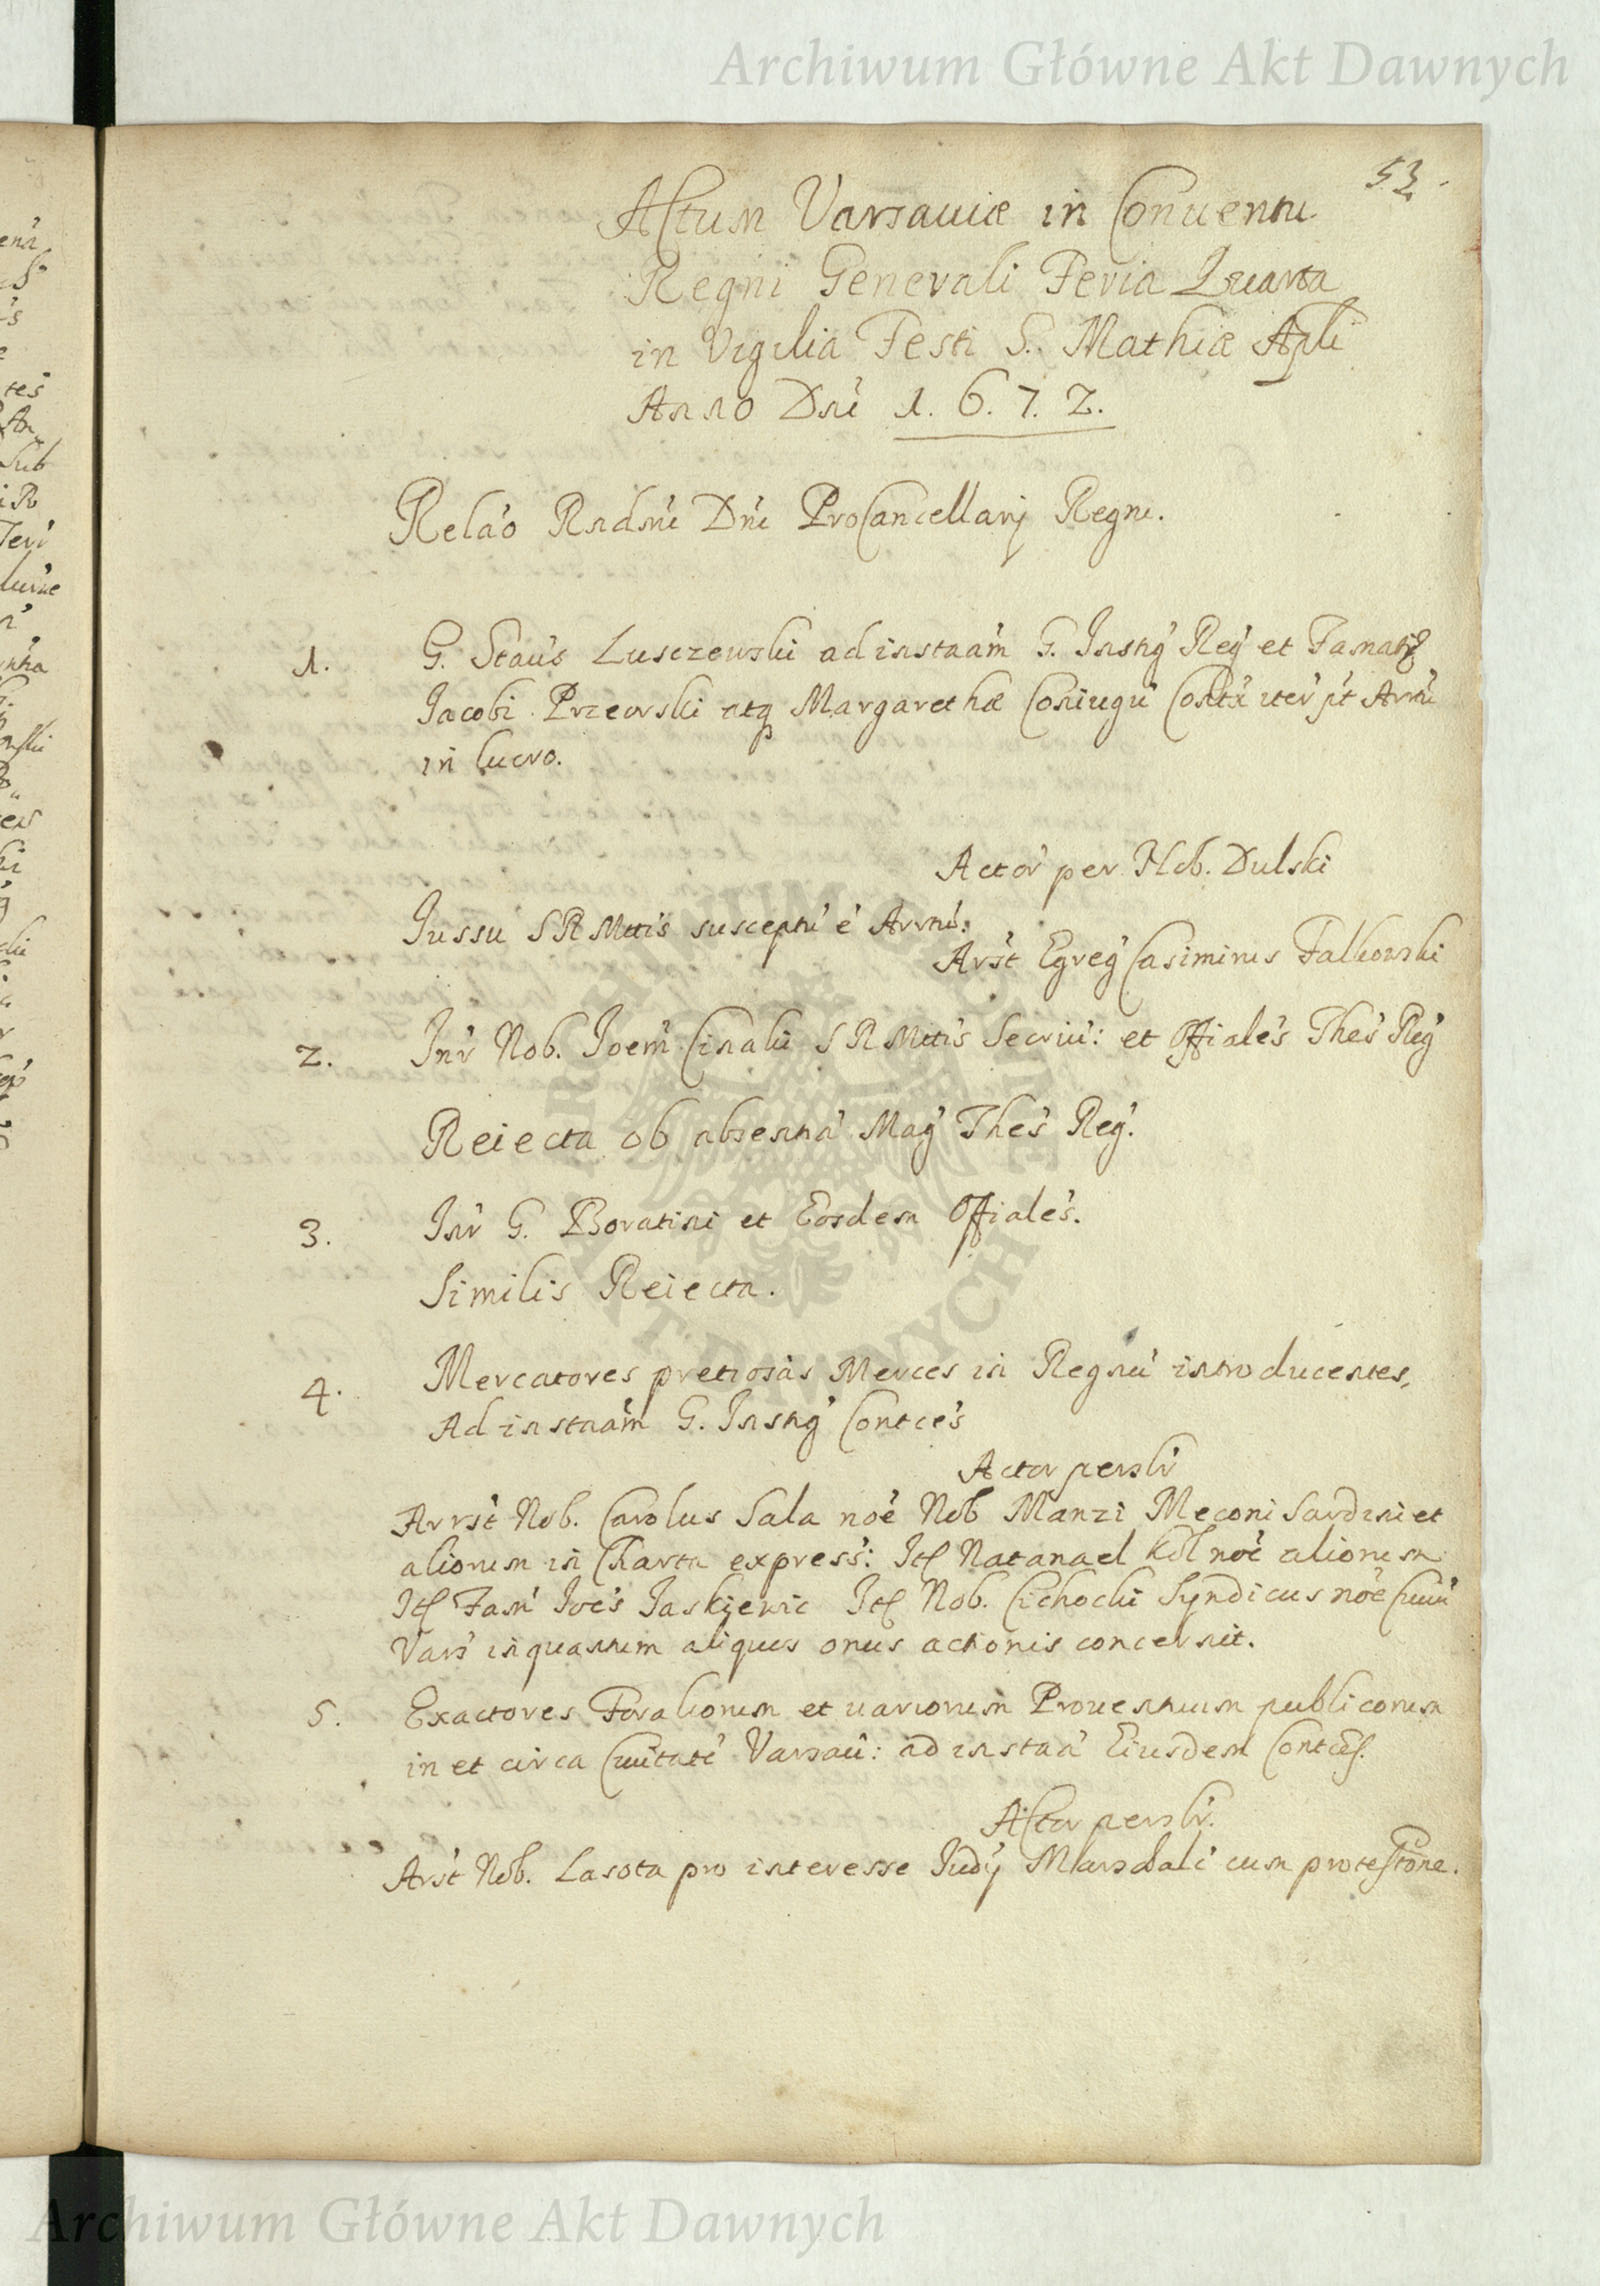 Archiwum Główne Akt Dawnych
53.
Actum Varsauiæ in Conuentu
Regni Generali Feria Quarta
in Vigilia Festi S. Mathiæ Apli
Anno Dni 1. 6. 7. 2.
Relao Rndmi Dni ProCancellarij Regni.
1. G. Staus Lusczewski ad instaam G. Instig Reg et Famati
Jacobi Przeorski atq Margarethæ Coniugu
in lucro.
Actor per Nob. Dulski
Jussu S R Mttis susceptu e Arrtu:
Arst Egreg Casimirus Falkowski
2. Inr Nob. Joem Cinaki S R Mttis Secriu: et Offiales Thes Reg
Reiecta ob absentia Mag Thes Reg.
3. Inr G. Boratini et Eosdem Offiales.
Similis Reiecta.
4. Mercatores pretiosas Merces in Regnu introducentes,
Ad instaam G. Instig Contces
Actor perslr
Arrst Nob. Carolus Sala noe Nob Manzi Meconi Sardini et
aliorum in Charta express: Itt Natanael Kol noe aliorum
Itt Fam Joes Jaskiewic Itt Nob. Cichocki Syndicus noe Ciuit
Vars inquantum aliquis onus actionis concernit.
5. Exactores Foralium et uariorum Prouentuum publicorum
in et circa Ciuitate Varsau: ad instaa Eiusdem Contces.
Actor perslr.
Arst Nob. Lasota pro interesse Judij Marsdali cum protestone.
ARCHIWUM GŁÓWNE AKT DAWNYCH
Archiwum Główne Akt Dawnych